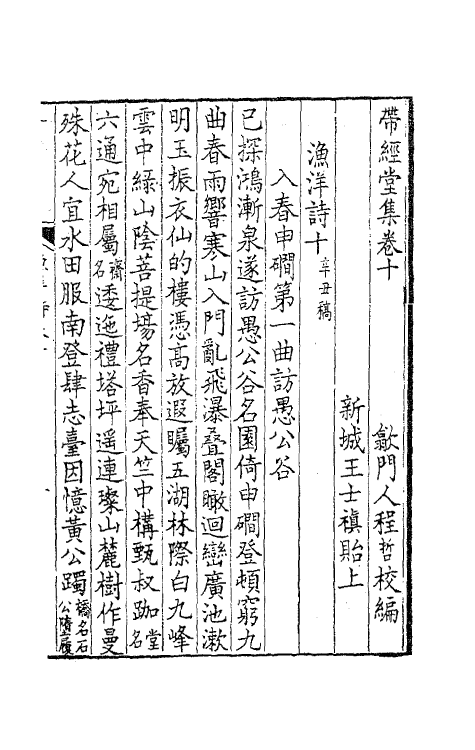 帶經堂集卷十
歙門人程哲校編
新城王士禛貽上
漁洋詩十辛丑稿
入春申磵第一曲訪愚公谷
已探鴻漸泉遂訪愚公谷名園倚申磵登頓窮九
曲春雨響寒山入門亂飛瀑叠閣瞰迴巒廣池漱
明玉振衣仙的樓憑高放遐矚五湖林際白九峰
雲中綠山陰菩提場名香奉天竺中構甄叔跏堂名
六通宛相屬齋名逶迤禮塔坪遥連璨山麓樹作曼
殊花人宜水田服南登肆志臺因憶黃公躅橋名石公隋履